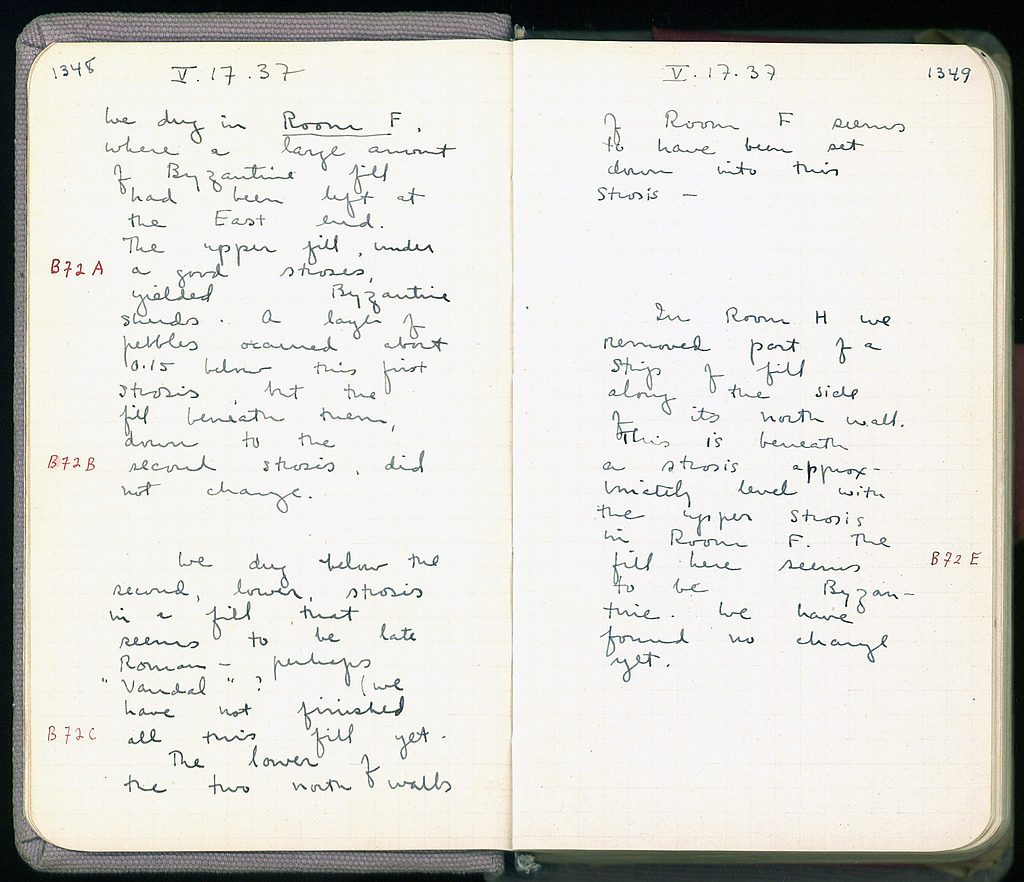 1348
V. 17. 37
We dug in Room F,
where a large amount
of Byzantine fill
had been left at
the East end.
The upper fill, under
B72 A
a good stroses,
yielded Byzantine
sherds. A layer of
pebbles occurred about
0.15 below this first
strosis, but the
fill beneath them,
down to the
B72 B
second strosis, did
not change.
We dug below the
second, lower, strosis
in a fill that
seems to be late
Roman – perhaps
"Vandal"? (we
have not finished
B72 C
all this fill yet.
The lower of
the two north walls
V. 17. 37
1349
of Room F seems
to have been set
down into this
strosis –
In Room H we
removed part of a
strip of fill
along the side
of its north wall.
This is beneath
a strosis approx-
imately level with
the upper strosis
in Room F. The
B72 E
fill here seems
to be Byzan-
tine. We have
found no change
yet.